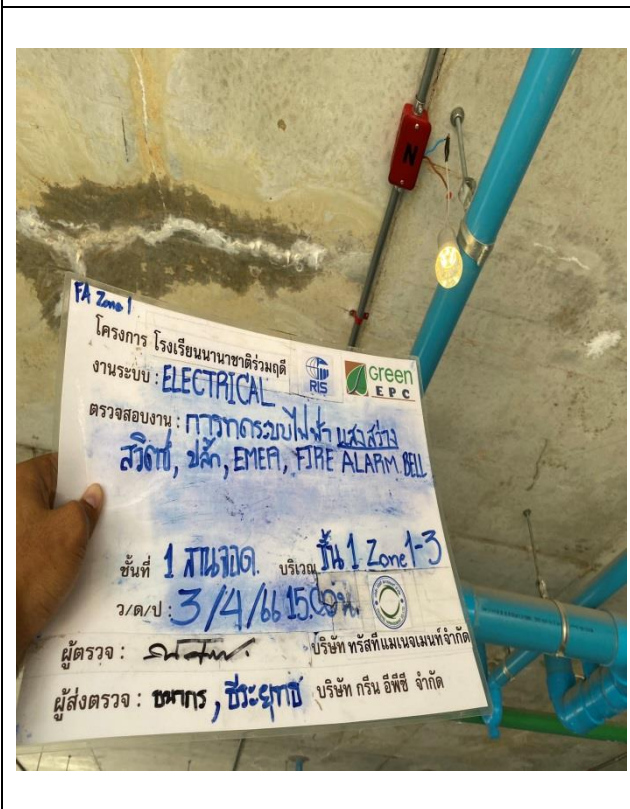 N
FA Zone 1
โครงการ โรงเรียนนานาชาติร่วมฤดี
RIS
Green
EPC
งานระบบ : ELECTRICAL
ตรวจสอบงาน : การทดระบบไฟฟ้า แสงสว่าง
สวิตซ์, ปลั๊ก, EMER, FIRE ALARM BELL
ชั้นที่ 1 ลานจอด. บริเวณ ชั้น 1 Zone 1-3
ว/ด/ป : 3/4/66 15.00 น.
ผู้ตรวจ : บริษัท ทรัสที แมเนจเมนท์จำกัด
ผู้ส่งตรวจ : ธนากร, ธีระยุทธ บริษัท กรีน อีพีซี จำกัด